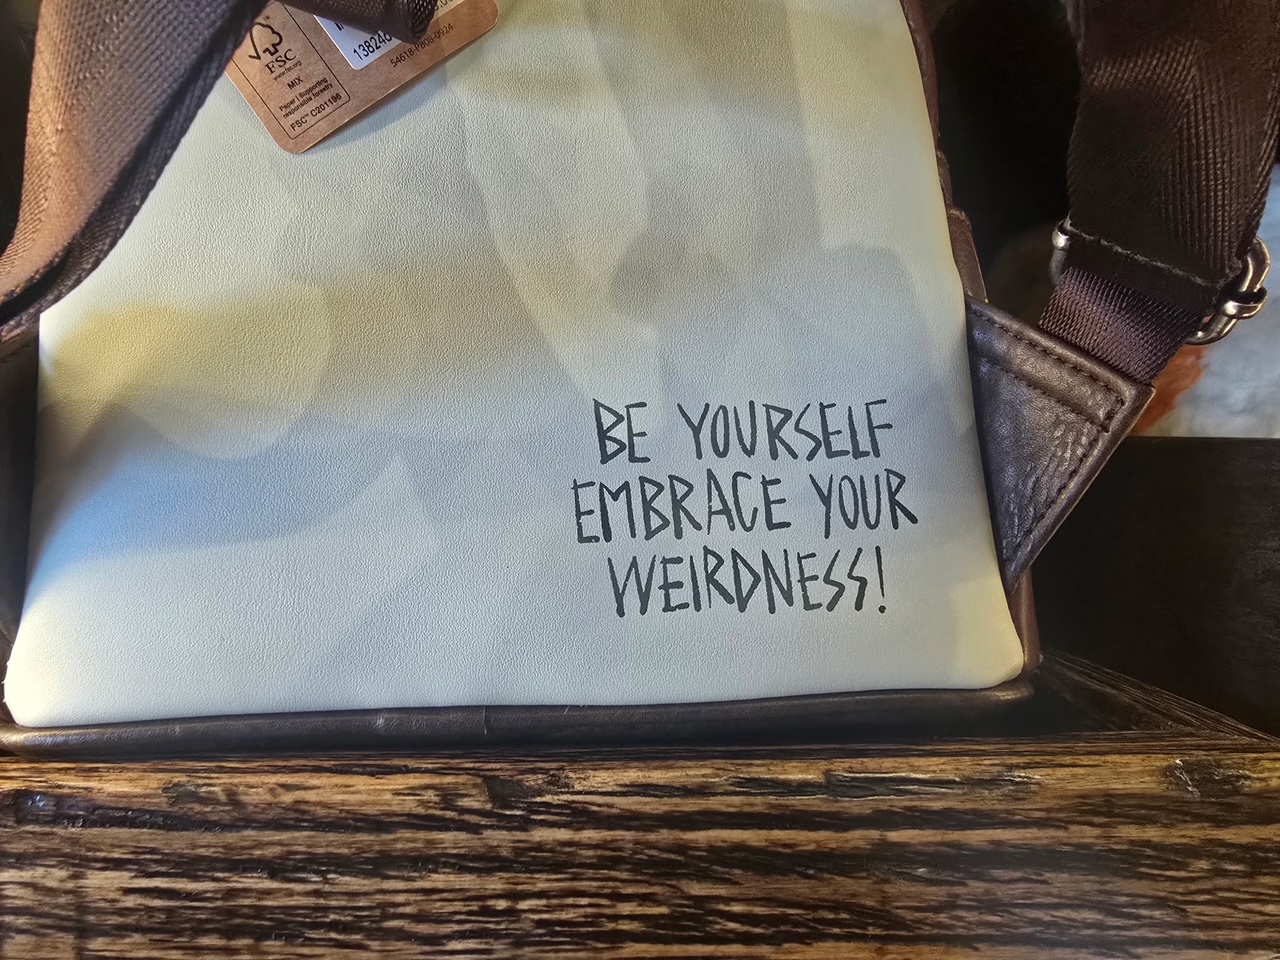 FSC
www.fsc.org
MIX
Paper | Supporting
responsible forestry
FSC™ C201196
54618-PB08-0924
BE YOURSELF
EMBRACE YOUR
WEIRDNESS!